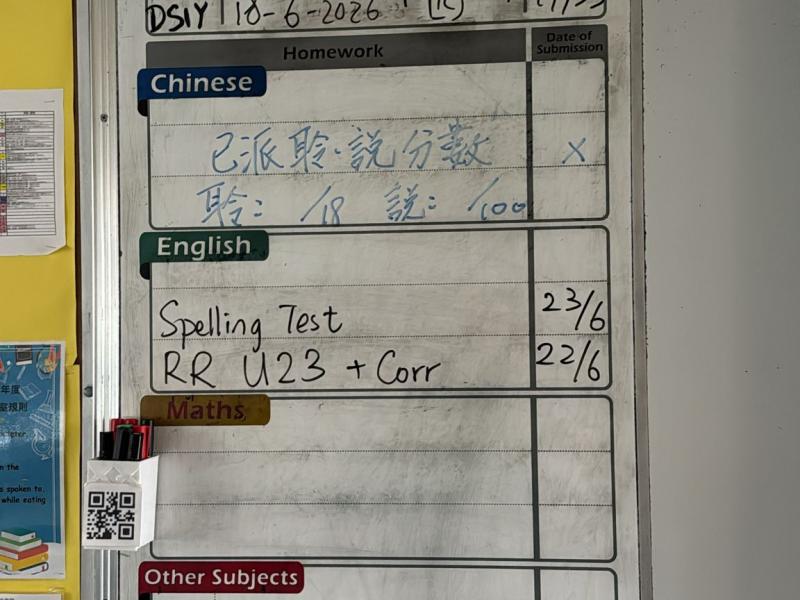 DSIY 18-6-2026
Homework
Date of Submission
Chinese
已派聆·說分數 X
聆: /18 說: /100
English
Spelling Test 23/6
RR U23 + Corr 22/6
Maths
Other Subjects
年度
室規則
n the
s spoken to,
while eating